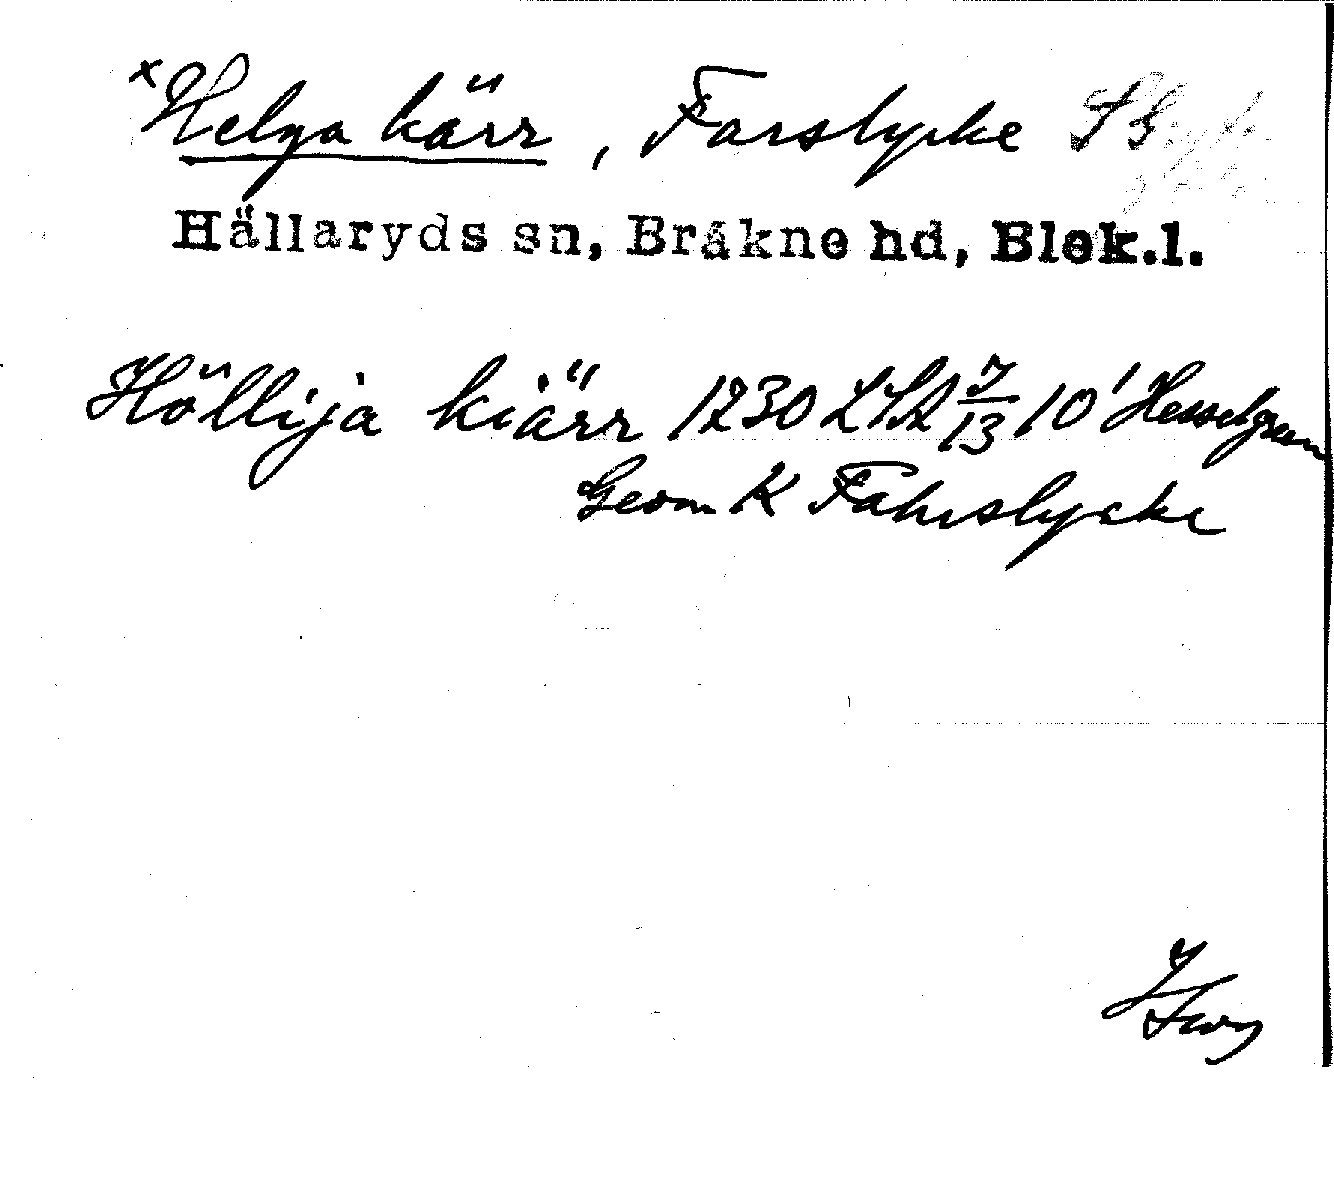 ˣHelga kärr, Farslycke
Hällaryds sn, Bräkne hd, Blek.l.
Höllija kiärr 1730 LSA 7/13 10' Hesselgreen
Geom K Fahrslycke